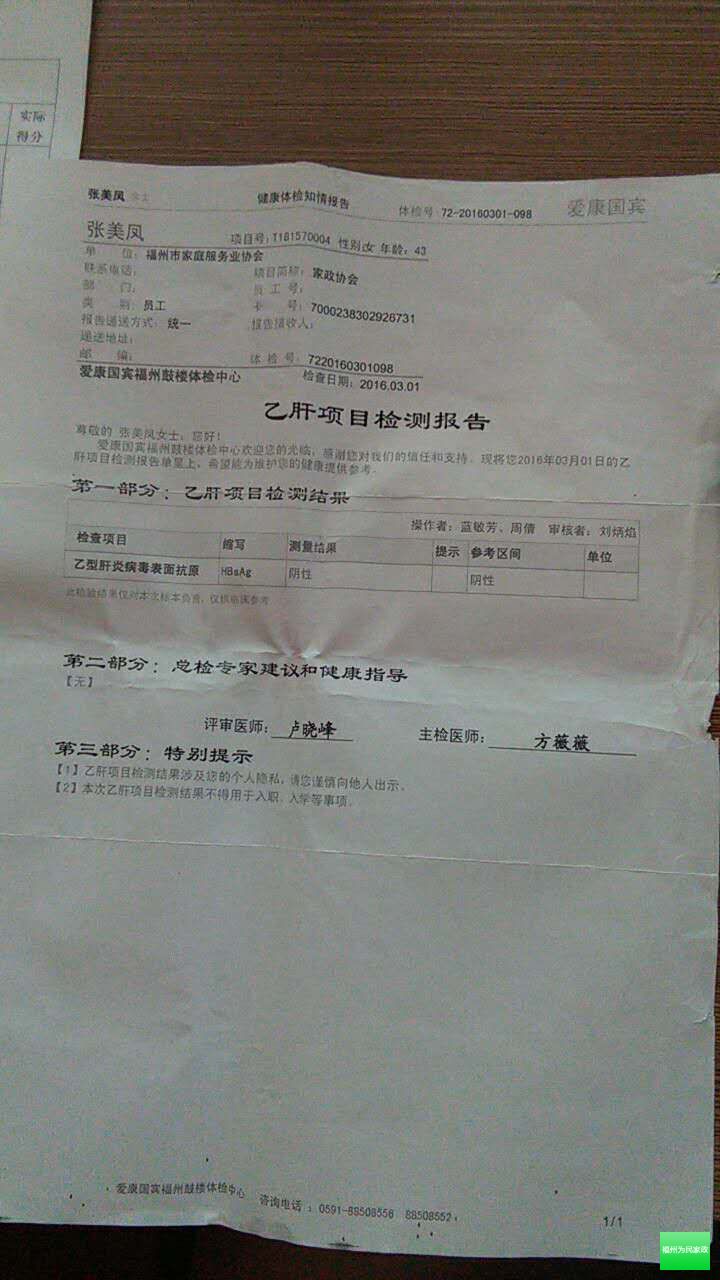 实际
得分
张美凤 女士 健康体检知情报告 体检号 72-20160301-098 爱康国宾
张美凤 项目号: T181570004 性别:女 年龄: 43
单 位: 福州市家庭服务业协会
联系电话: 项目简称: 家政协会
部 门: 员 工 号:
类 别: 员工 卡 号: 7000238302926731
报告递送方式: 统一 报告接收人:
递送地址:
邮 编: 体 检 号: 7220160301098
爱康国宾福州鼓楼体检中心 检查日期: 2016.03.01
乙肝项目检测报告
尊敬的 张美凤女士，您好！
爱康国宾福州鼓楼体检中心欢迎您的光临，感谢您对我们的信任和支持。现将您2016年03月01日的乙
肝项目检测报告单呈上，希望能为维护您的健康提供参考。
第一部分: 乙肝项目检测结果
操作者: 蓝敏芳、周倩 审核者: 刘炳焰
检查项目 缩写 测量结果 提示 参考区间 单位
乙型肝炎病毒表面抗原 HBsAg 阴性 阴性
此检验结果仅对本次标本负责，仅供临床参考
第二部分: 总检专家建议和健康指导
【无】
评审医师: 卢晓峰 主检医师: 方薇薇
第三部分: 特别提示
【1】乙肝项目检测结果涉及您的个人隐私，请您谨慎向他人出示。
【2】本次乙肝项目检测结果不得用于入职、入学等事项。
爱康国宾福州鼓楼体检中心 咨询电话 : 0591-88508556 88508552
1/1
福州为民家政